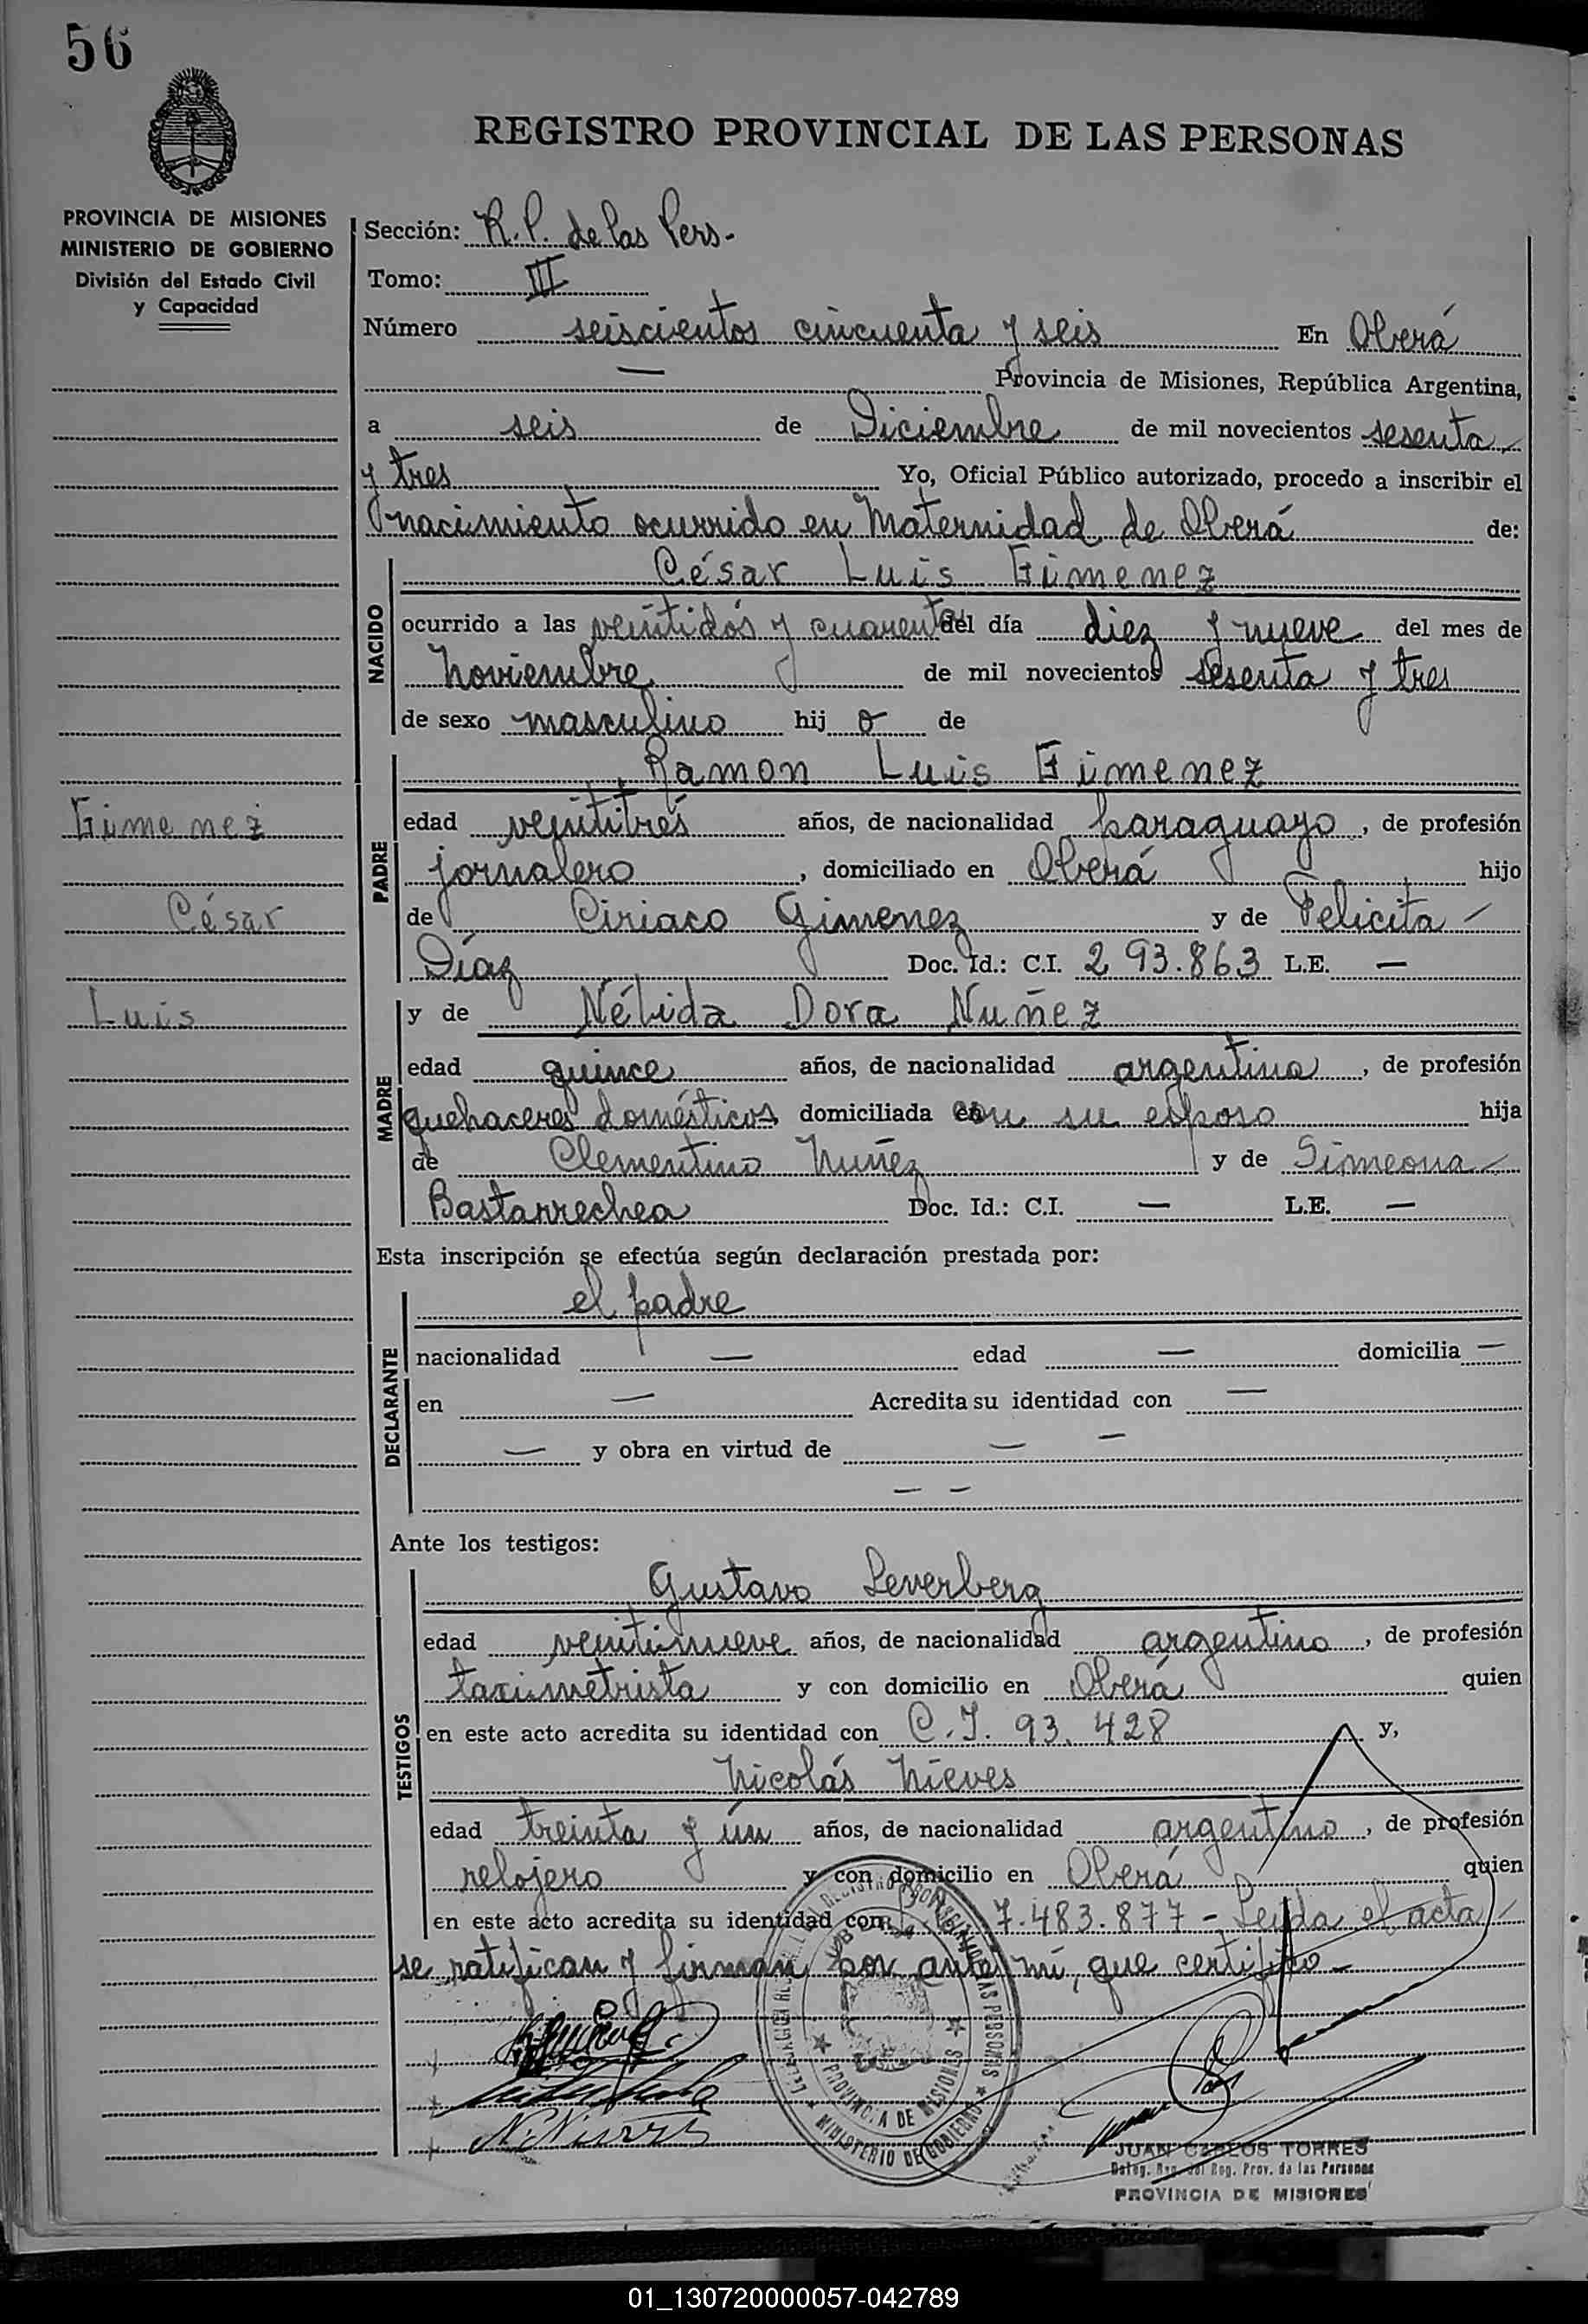 56
REGISTRO PROVINCIAL DE LAS PERSONAS
PROVINCIA DE MISIONES
MINISTERIO DE GOBIERNO
División del Estado Civil
y Capacidad
Sección: R.P. de las Pers.
Tomo: III
Número seiscientos cincuenta y seis En Oberá
— Provincia de Misiones, República Argentina,
a seis de Diciembre de mil novecientos sesenta
y tres Yo, Oficial Público autorizado, procedo a inscribir el
nacimiento ocurrido en Maternidad de Oberá de:
NACIDO
César Luis Gimenez
ocurrido a las veintidós y cuarenta del día diez y nueve del mes de
Noviembre de mil novecientos sesenta y tres
de sexo masculino hij o de
PADRE
Ramon Luis Gimenez
edad veintitrés años, de nacionalidad paraguayo, de profesión
jornalero, domiciliado en Oberá hijo
de Ciriaco Gimenez y de Felicita
Díaz Doc. Id.: C.I. 293.863 L.E. —
Gimenez
César
Luis
MADRE
y de Nélida Dora Nuñez
edad quince años, de nacionalidad argentina, de profesión
quehaceres domésticos domiciliada con su esposo hija
de Clementino Nuñez y de Simeona
Bastarrechea Doc. Id.: C.I. — L.E. —
Esta inscripción se efectúa según declaración prestada por:
DECLARANTE
el padre
nacionalidad — edad — domicilia —
en — Acredita su identidad con —
— y obra en virtud de — —
— —
Ante los testigos:
TESTIGOS
Gustavo Leverberg
edad veintinueve años, de nacionalidad argentino, de profesión
taximetrista y con domicilio en Oberá quien
en este acto acredita su identidad con C.I. 93.428 y,
Nicolás Nieves
edad treinta y ún años, de nacionalidad argentino, de profesión
relojero y con domicilio en Oberá quien
en este acto acredita su identidad con 7.483.877 - Leída el acta
se ratifican y firman por ante mí, que certifico -
PROVINCIA DE MISIONES
MINISTERIO DE GOBIERNO
JUAN CARLOS TORRES
Deleg. Reg. del Reg. Prov. de las Personas
PROVINCIA DE MISIONES
01_130720000057-042789